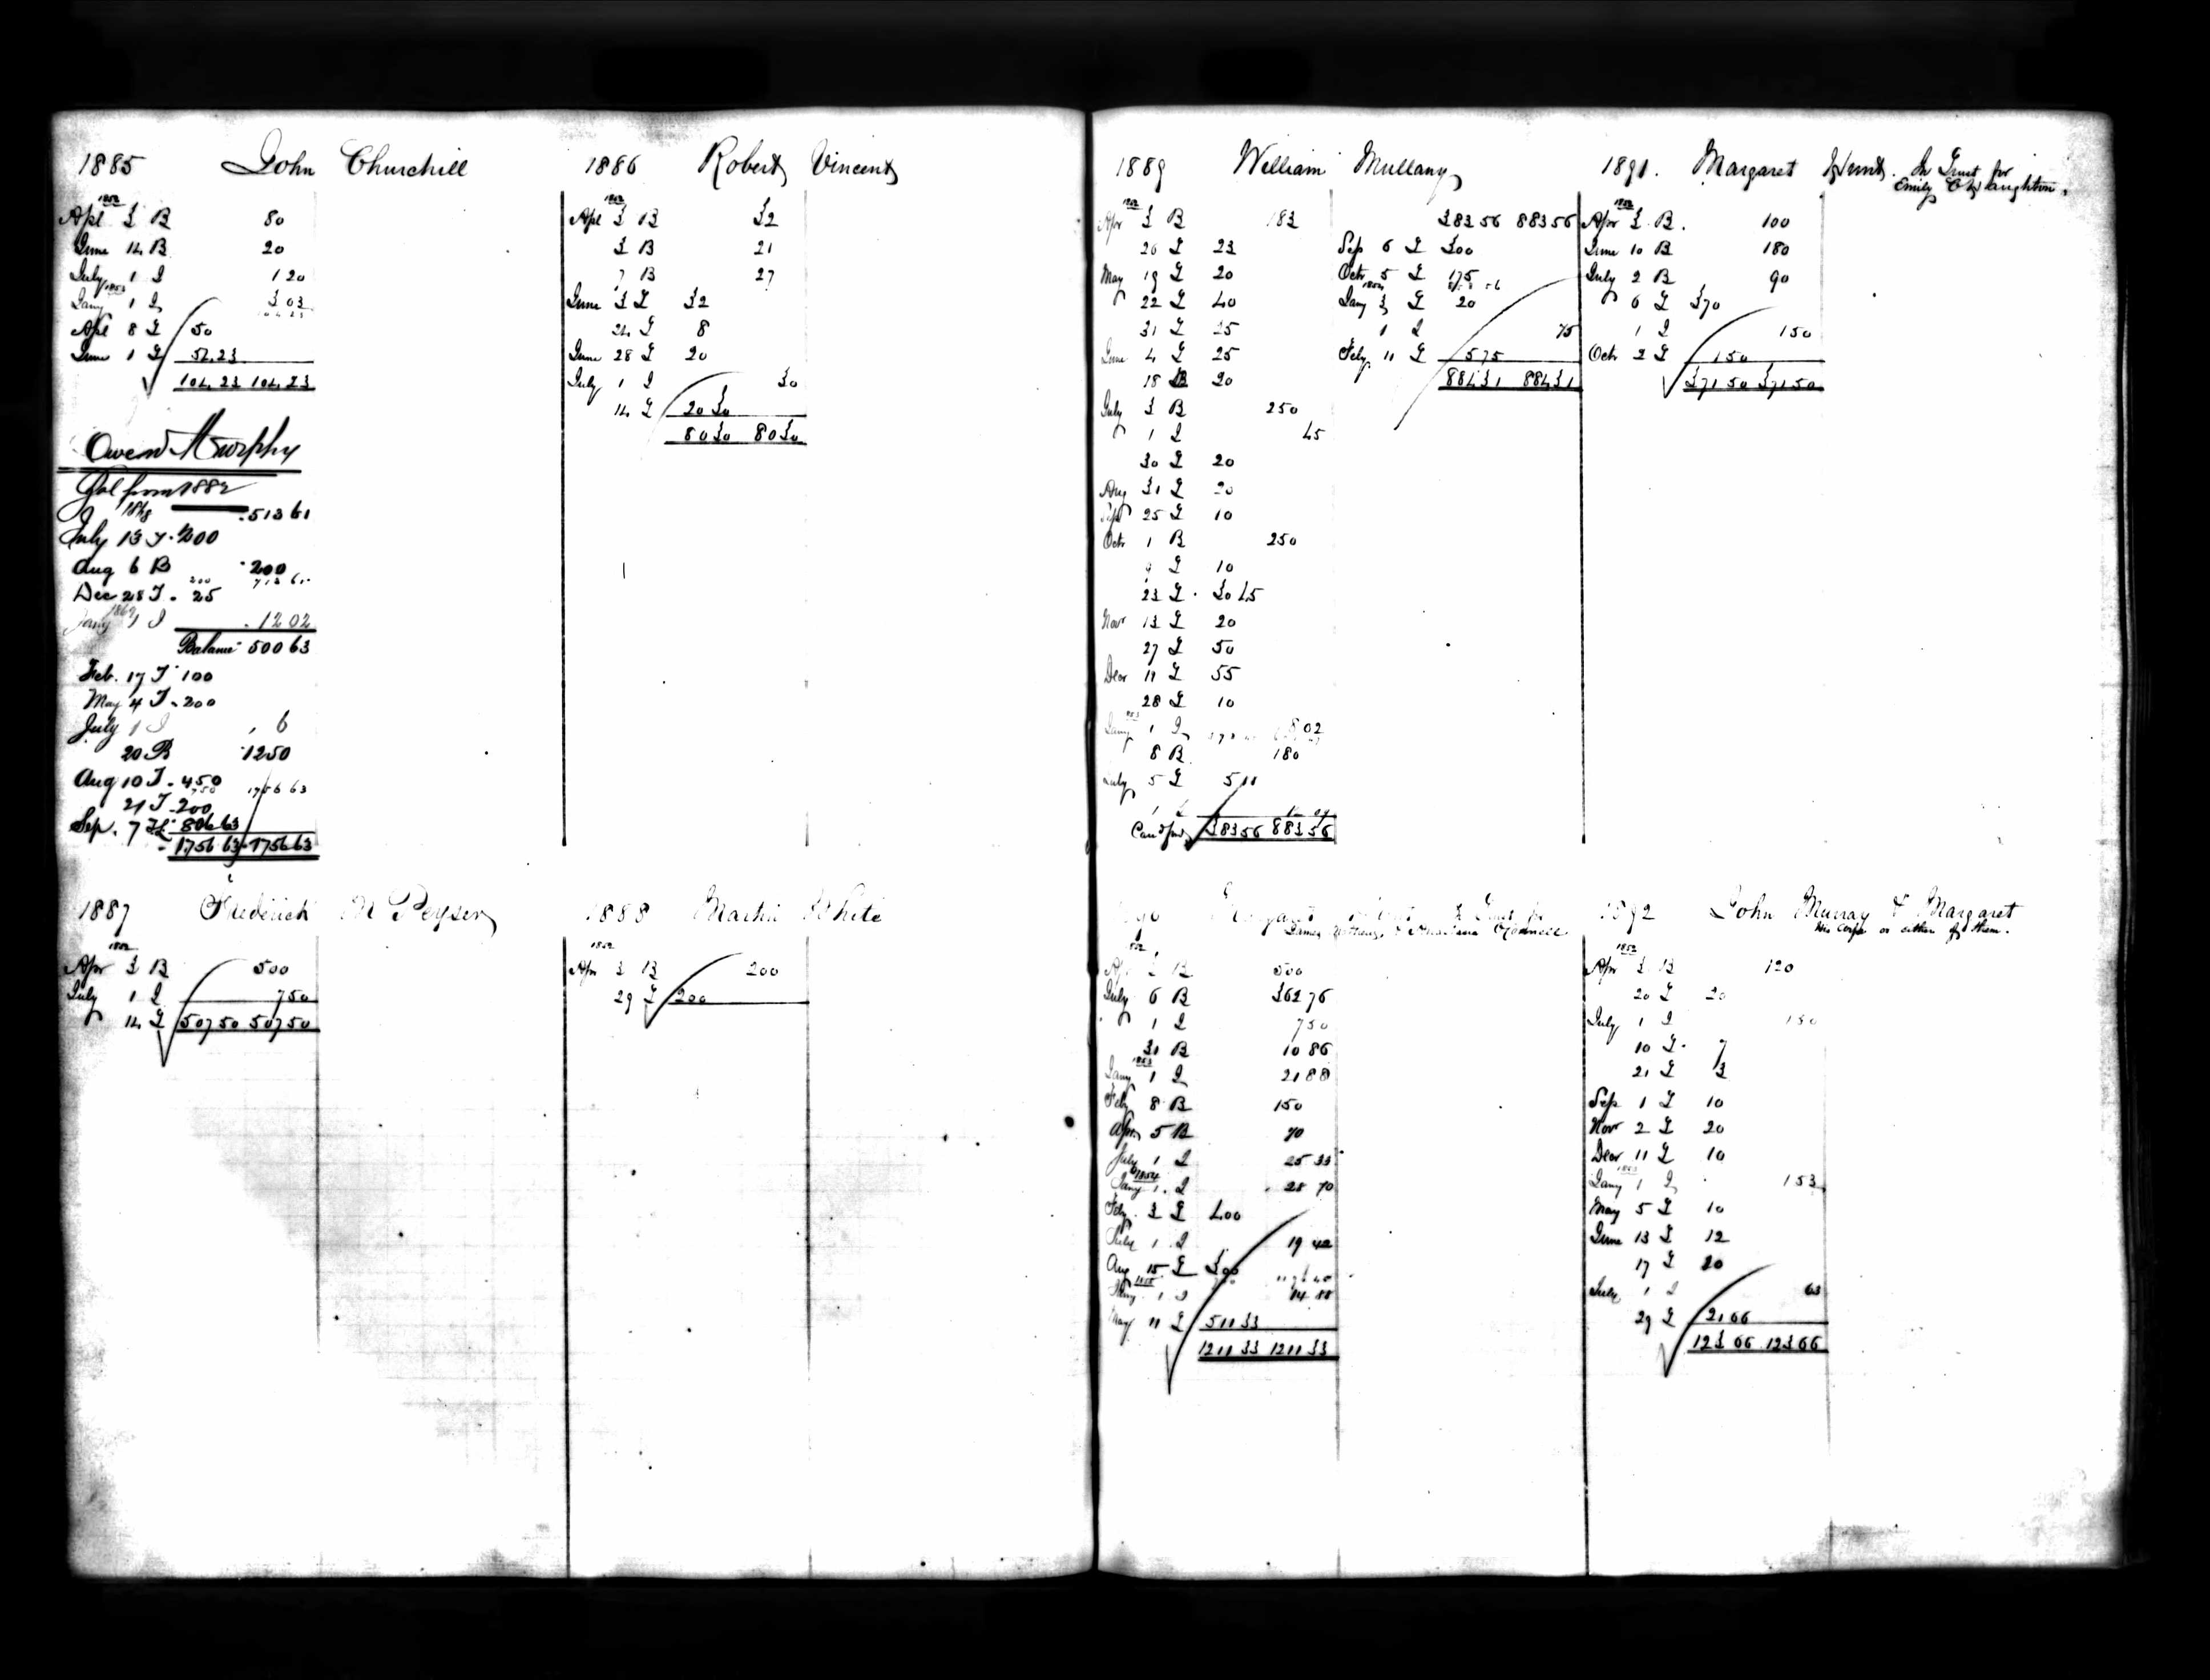 1885 John Churchill
1852
Apl 3 B 80
June 14 B 20
July 1 I 1 20
1853
Jany 1 I 3 03
Apl 8 T 50
June 1 T 54.23
104.23 104.23
Owen Murphy
Bal from 1882
1868 513 61
July 13 T. 200
Aug 6 B 200
Dec 28 T. 25
1869
Jany 1 I 12 02
Balance 500 63
Feb. 17 T 100
May 4 T. 200
July 1 I 6
20 B 1250
Aug 10 T. 450
1756 63
21 T. 200
Sep. 7 T 806 63
1756 63 1756 63
1886 Robert Vincent
1852
Apl 3 B 32
3 B 21
7 B 27
June 3 T 32
24 T 8
June 28 T 20
July 1 I 30
14 T 20 30
80 30 80 30
1887 Frederick M Peyser
1852
Apr 3 B 500
July 1 I 7 50
14 T 507 50 507 50
1888 Martin White
1852
Apr 3 B 200
29 T 200
1889 William Mullany
1852
Apr 3 B 183
26 T 23
May 19 T 20
22 T 40
31 T 25
June 4 T 25
18 20
July 3 B 250
1 I 45
30 T 20
Aug 31 T 20
Sept 25 T 10
Oct 1 B 250
9 T 10
23 T 30 45
Nov 13 T 20
27 T 50
Dec 11 T 55
28 T 10
Jany 1 I 8 02
8 B 180
July 5 T
Card forwd 383 56 883 56
383 56 883 56
Sep 6 T 300
Oct 5 T 175
1854
Jany 3 T 20
1 I 75
Feby 11 T 5 75
884 31 884 31
1891. Margaret Hunt. In Trust for
Emily
1852
Apr 3 B. 100
June 10 B 180
July 2 B 90
6 T 370
1 I 1 50
Oct 2 T 1 50
371 50 371 50
1890 Margaret In Trust for
James
1852
Apr 3 B 500
July 6 B 362 76
1 I 7 50
31 B 10 86
1853
Jany 1 I 21 88
Feby 8 B 150
Apr 5 B 70
July 1 I 25 33
1854
Jany 1. I 28 70
Feby 3 T 400
July 1 I 19 42
Aug 15 T 300
1855
Jany 1 I 14 88
May 11 T 511 33
1211 33 1211 33
1892 John Murray & Margaret
His Wife or either of them.
1852
Apr 3 B 120
20 T 20
July 1 I 1 50
10 T. 7
21 T 3
Sep 1 T 10
Nov 2 T 20
Dec 11 T 10
1853
Jany 1 I 1 53
May 5 T 10
June 13 T 12
17 T 10
July 1 I 63
29 T 21 66
123 66 123 66